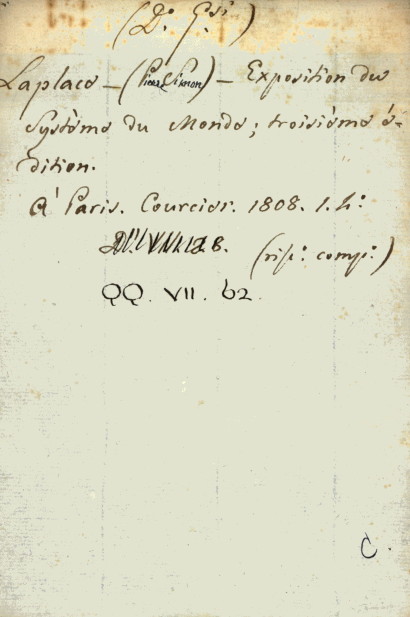 (D.º G.si)
Laplace – (Pierre Simon) – Exposition du
Système du Monde; troisième é-
dition.
A' Paris. Courcier. 1808. 1. 4.º
(risp.º comp.º)
QQ. VII. 62.
C.